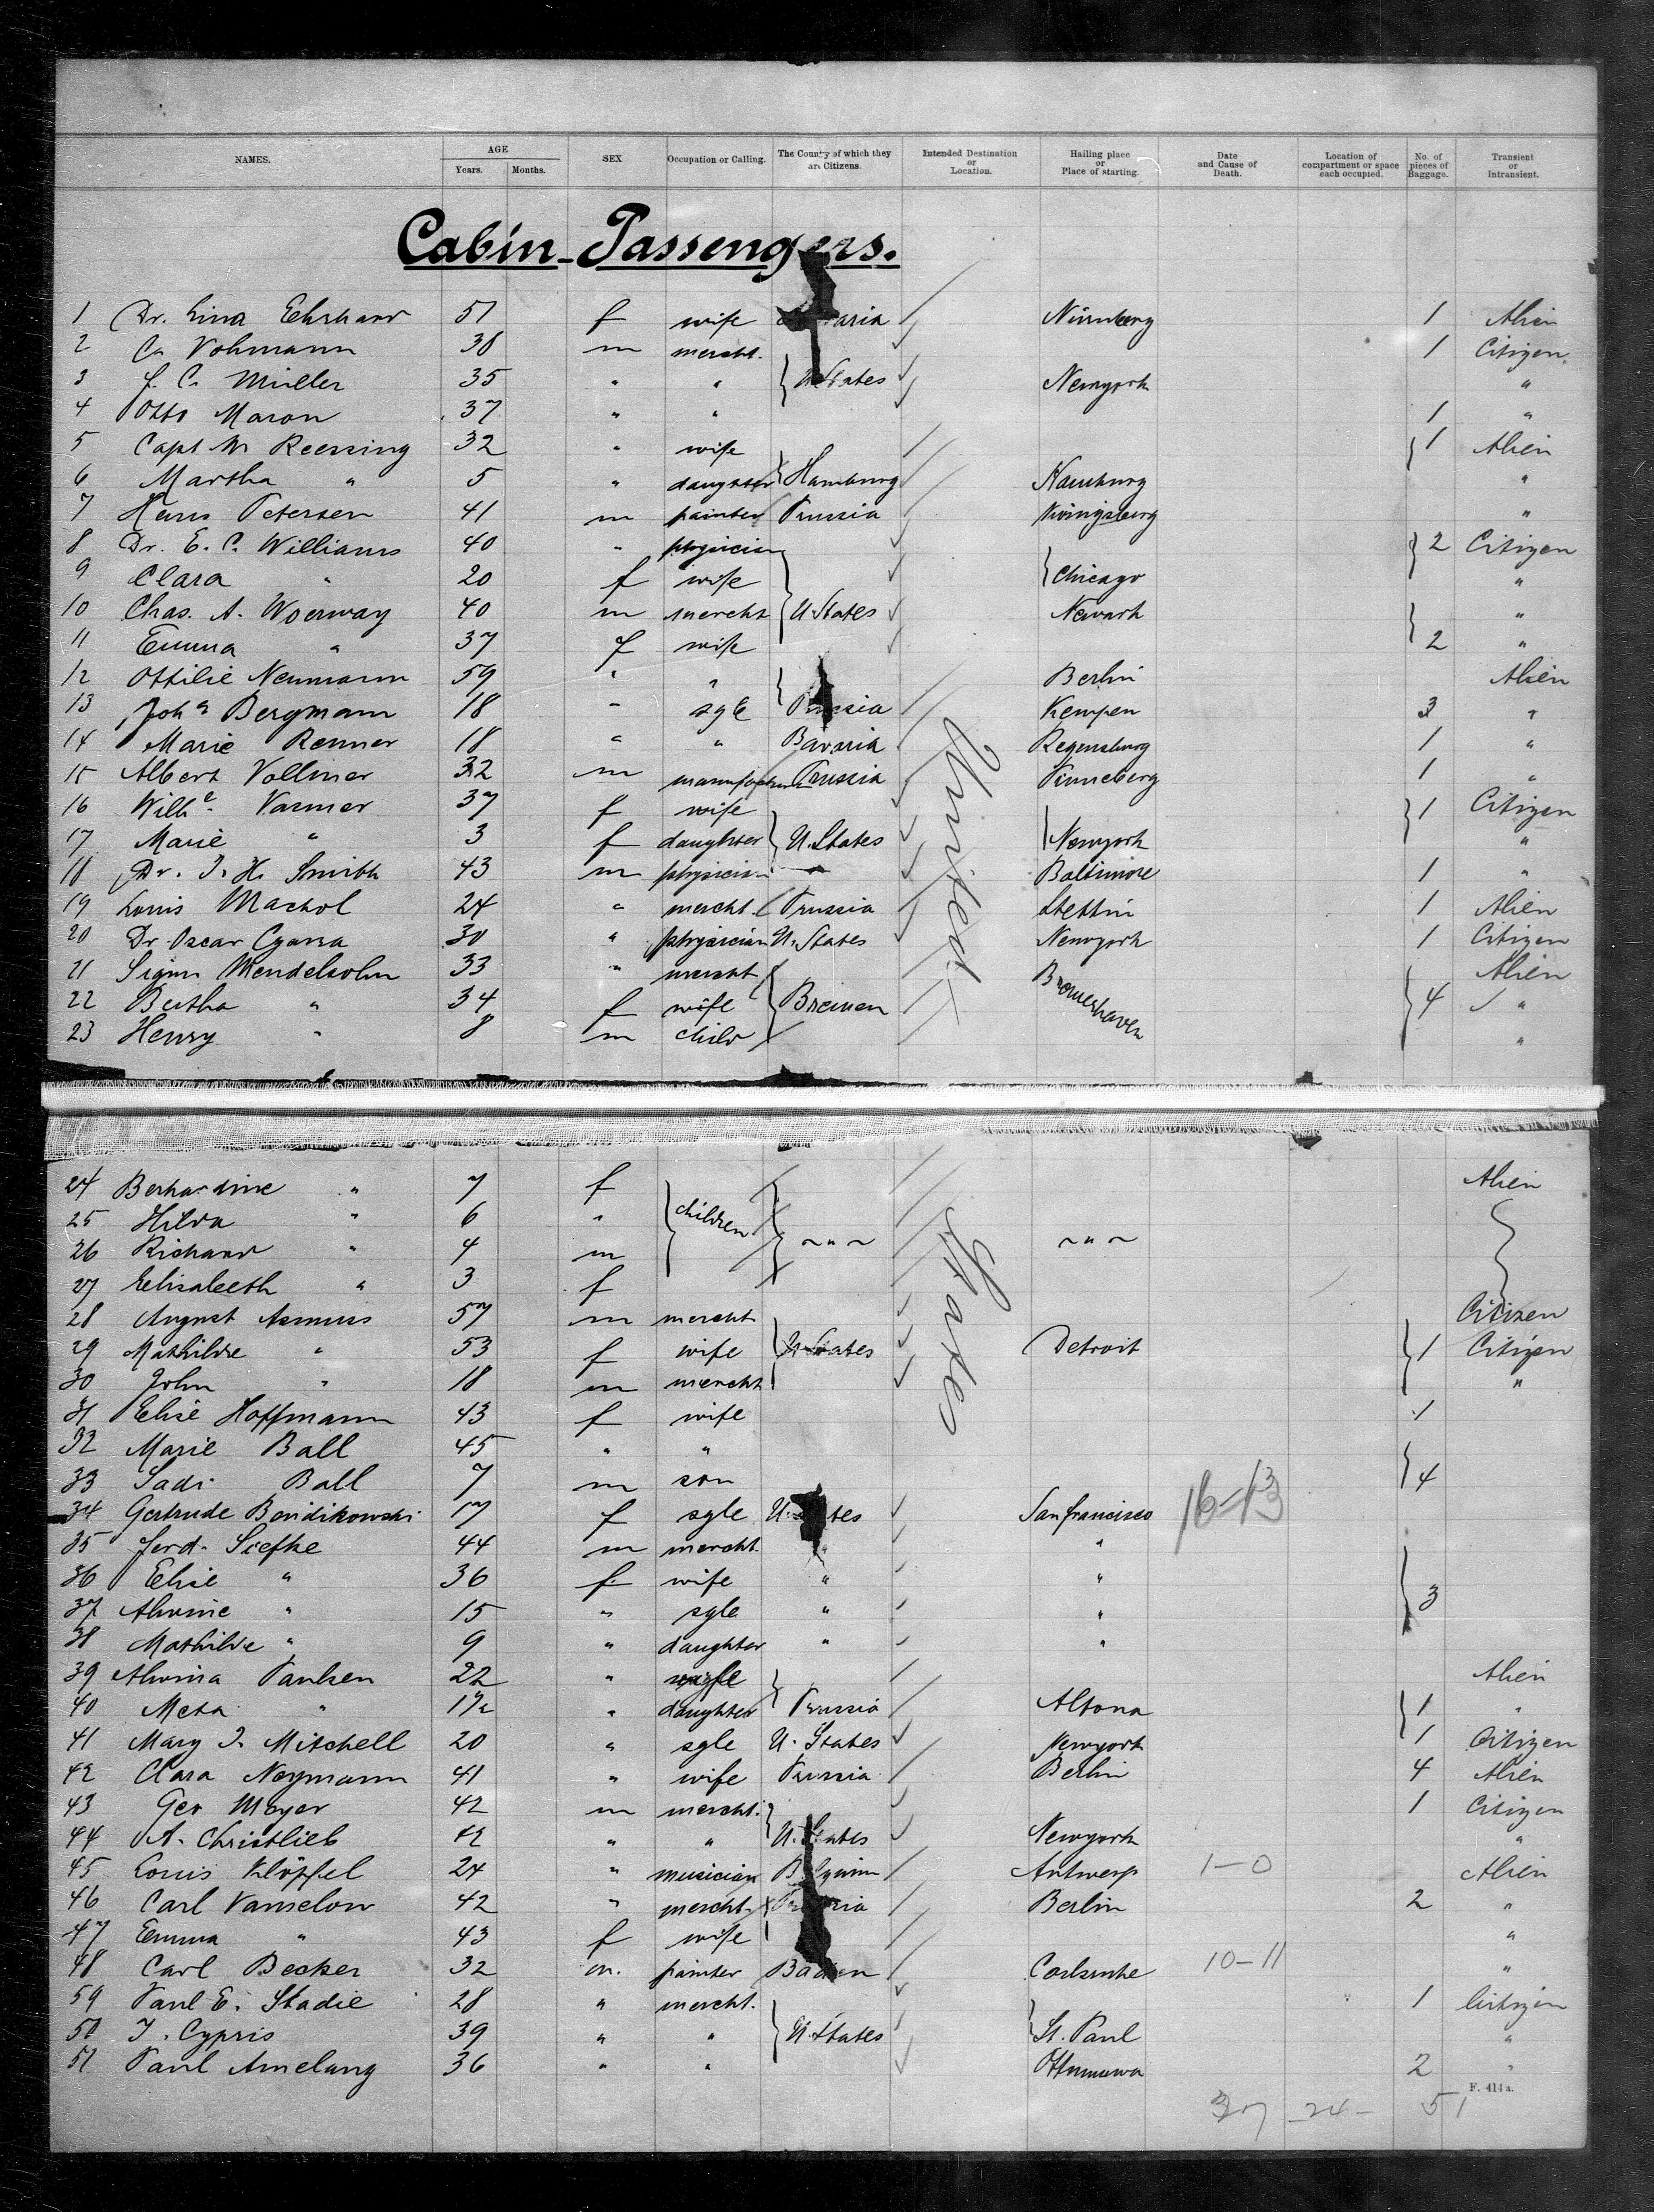 NAMES. AGE Years. Months. SEX Occupation or Calling. The County of which they are Citizens. Intended Destination or Location. Hailing place or Place of starting. Date and Cause of Death. Location of compartment or space each occupied. No. of pieces of Baggage. Transient or Intransient.
Cabin-Passengers.
1 Dr. Lina Ehrhard 51 f wife aria Nürnberg 1 Alien
2 C. Vohmann 38 m mercht. 1 Citizen
3 f. C. Müller 35 " " } U.States Newyork "
4 Otto Maron 37 " " 1 "
5 Capt M Reessing 32 " wife } 1 Alien
6 Martha " 5 " daughter } Hamburg Hamburg "
7 Hans Petersen 41 m painter Prussia Königsberg "
8 Dr. E. C. Williams 40 " physician } 2 Citizen
9 Clara " 20 f wife } Chicago "
10 Chas. A. Woerway 40 m mercht } U.States Newark "
11 Emma " 37 f wife } 2 "
12 Ottilie Neumann 59 " " Berlin Alien
13 Joha Bergmann 18 " sgle } Prussia Kempen 3 "
14 Marie Renner 18 " " Bavaria Regensburg 1 "
15 Albert Vollmer 32 m Prussia Pinneberg 1 "
16 Wilhe. Varmer 37 f wife } 1 Citizen
17 Marie " 3 f daughter } U.States } Newyork "
18 Dr. J. H. Smith 43 m physician Baltimore 1 "
19 Louis Machol 24 " mercht. Prussia Stettin 1 Alien
20 Dr. Oscar 30 " physician U. States Newyork 1 Citizen
21 Sigm Mendelsohn 33 " mercht Alien
22 Bertha " 34 f wife } Bremen Bremerhaven } 4 "
23 Henry " 8 m child "
United
24 Berhardine " 7 f Alien
25 Hilda " 6 " } children
26 Richard " 4 m } ~"~ ~"~
27 Elisabeth " 3 f
28 August Asmuss 57 m mercht Citizen
29 Mathilde " 53 f wife } U.States Detroit } 1 Citizen
30 John " 18 m mercht "
31 Elise Hoffmann 43 f wife 1
32 Marie Ball 45 " "
33 Sadi Ball 7 m son } 4
34 Gertrude Bendikowski 17 f sgle U. States Sanfrancisco 16-13
35 Ferd. Siefke 44 m mercht. " "
36 Elise " 36 f wife " "
37 Alwine " 15 " sgle " " } 3
38 Mathilde " 9 " daughter " "
39 Alwina Paulsen 22 " Alien
40 Meta " 1½ " daughter } Prussia Altona } 1 "
41 Mary J. Mitchell 20 " sgle U. States Newyork 1 Citizen
42 Clara Neymann 41 " wife Prussia Berlin 4 Alien
43 Geo Mayer 42 m mercht. 1 Citizen
44 A. Christlieb 42 " " } U. States Newyork "
45 Louis Klöpfel 24 " musician Belgium Antwerp 1-0 Alien
46 Carl Vanselow 42 " mercht. Berlin 2 "
47 Emma " 43 f wife "
48 Carl Becker 32 m. painter Baden Carlsruhe 10-11 "
59 Paul E. Stadie 28 " mercht. 1 Citizen
50 J. Cypris 39 " " } U.States } St. Paul "
51 Paul Amelung 36 " " Ottumuwa 2 "
States
F. 414a.
37 - 24 - 51